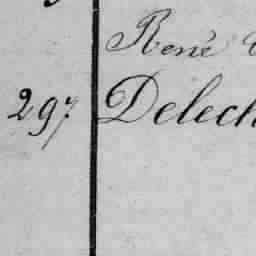 René
297 Delech